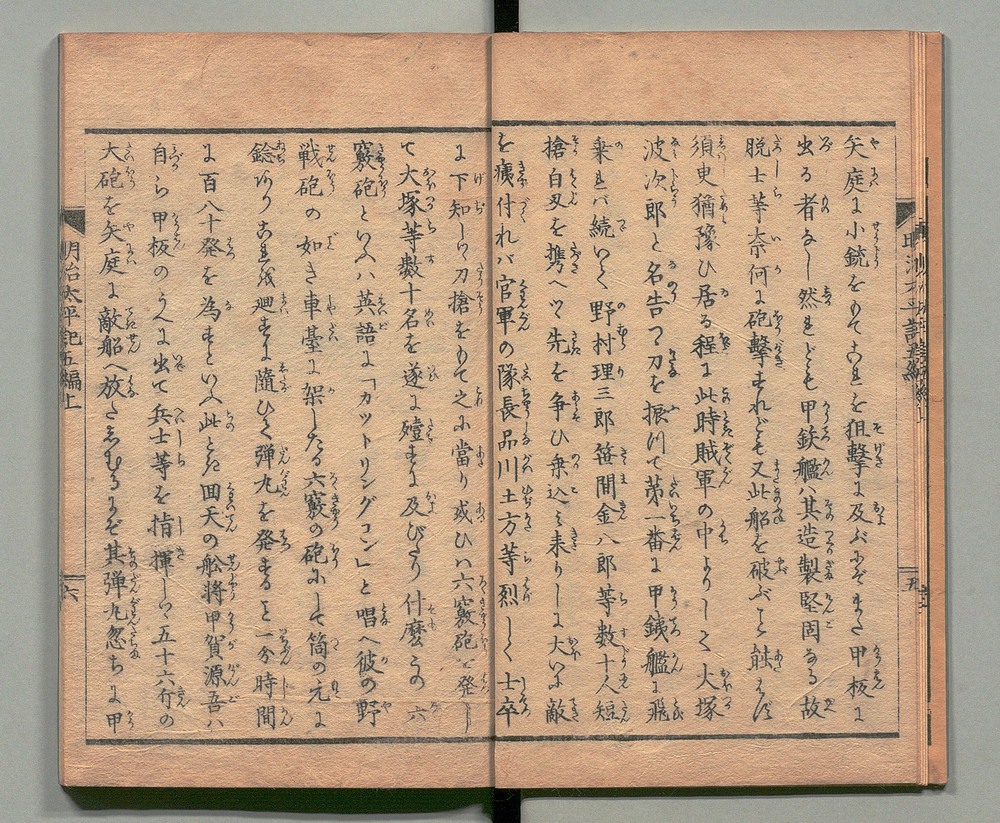 矢庭に小銃をもてこれを狙撃に及ぶにぞまた甲板に
出る者なし然れども甲鉄艦ハ其造製堅固なる故
脱士等奈何に砲撃すれども又此船を破ぶる能はず
須臾猶豫ひ居る程に此時賊軍の中よりして大塚
波次郎と名告つ刀を振つて第一番に甲鉄艦に飛
乗れバ続いて野村理三郎笹間金八郎等数十人短
槍白刃を携へつゝ先を争ひ乗込み来りしに大いに敵
を痍付れバ官軍の隊長品川土方等烈しく士卒
に下知して刀槍をもて之に當り或ひハ六竅砲を発し
て大塚等数十名を遂に殪すに及びたり什麼この六
竅砲といふハ英語に「カットリングコン」と唱へ彼の野
戦砲の如き車臺に架したる六竅の砲にして筒の元に
鐌ありこれを廻すに隨ひて弾丸を発すると一分時間
に百八十発を為すといふ此とき回天の舩将甲賀源吾ハ
自ら甲板のうへに出て兵士等を指揮して五十六斤の
大砲を矢庭に敵船へ放たしむるにぞ其弾丸忽ちに甲
明治太平記五編上
六
五